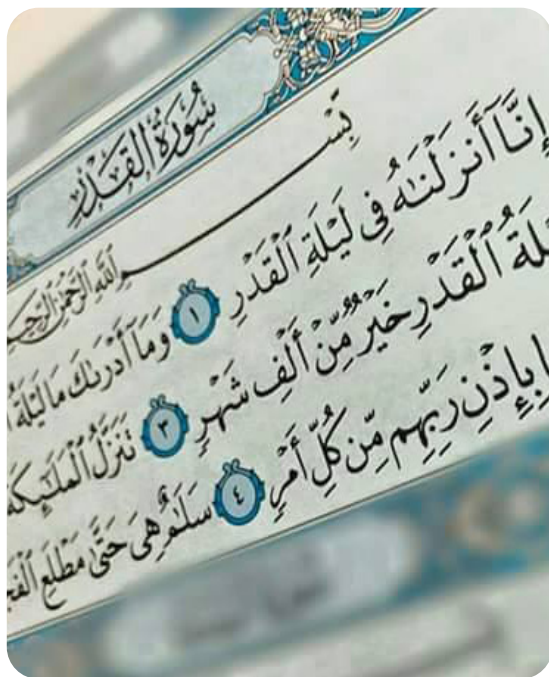 سُورَةُ القَدْرِ
بِسْمِ اللَّهِ الرَّحْمَٰنِ الرَّحِيمِ
إِنَّا أَنزَلْنَٰهُ فِى لَيْلَةِ ٱلْقَدْرِ ١ وَمَآ أَدْرَىٰكَ مَا لَيْلَةُ
ٱلْقَدْرِ خَيْرٌ مِّنْ أَلْفِ شَهْرٍ ٣ تَنَزَّلُ ٱلْمَلَٰٓئِكَةُ
بِإِذْنِ رَبِّهِم مِّن كُلِّ أَمْرٍ ٤ سَلَٰمٌ هِىَ حَتَّىٰ مَطْلَعِ ٱلْفَجْرِ